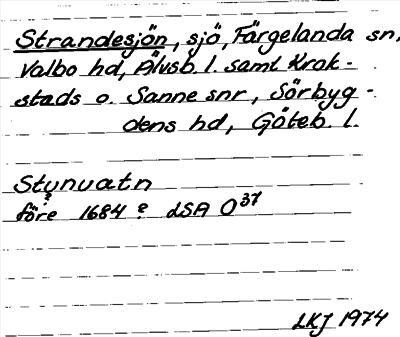 Strandesjön, sjö, Färgelanda sn,
Valbo hd, Älvsb. l. samt Krok-
stads o. Sanne snr, Sörbyg-
dens hd, Göteb. l.
Stynuatn
före 1684? LSA O37
LKJ 1974